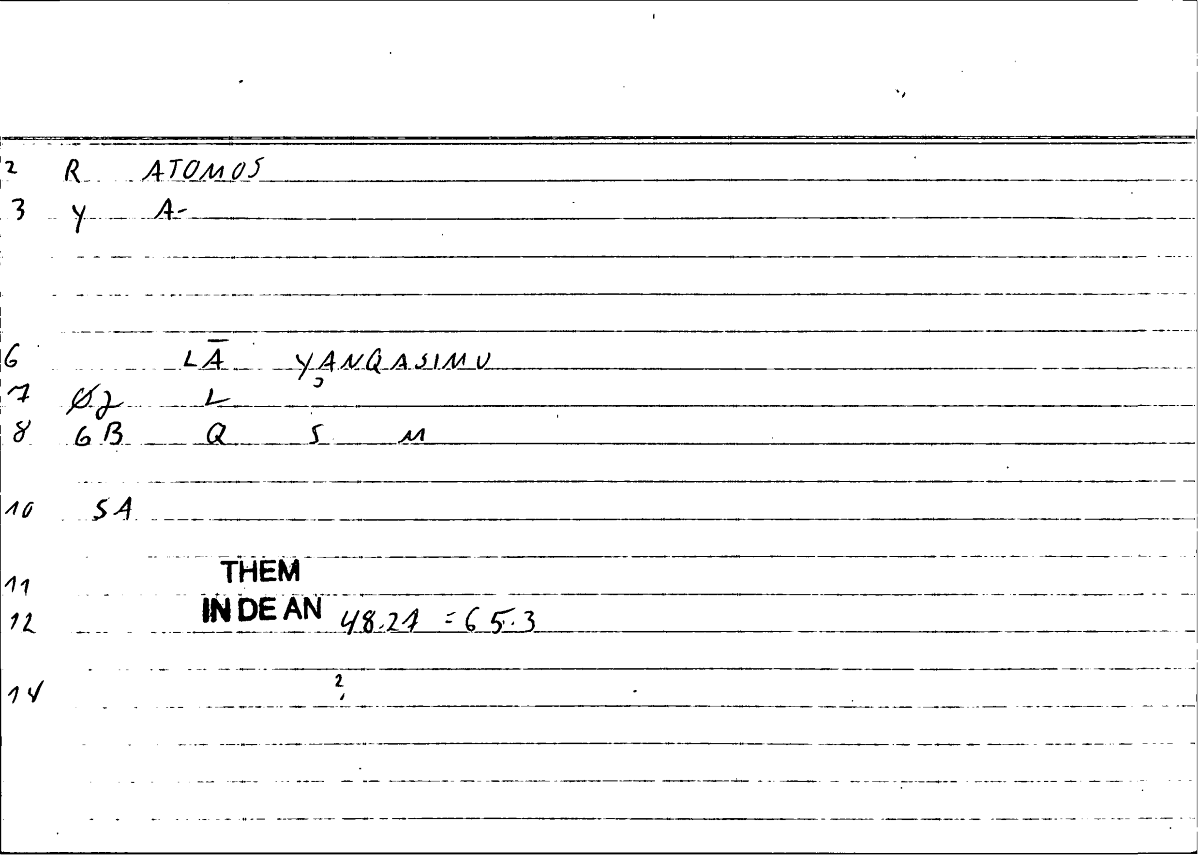 2 R ATOMOS
3 Y A-
6 LĀ YANQASIMU
7 Ø2 L
8 6B Q S M
10 SA
11 THEM
12 IN DE AN 48.21 = 65.3
14 2